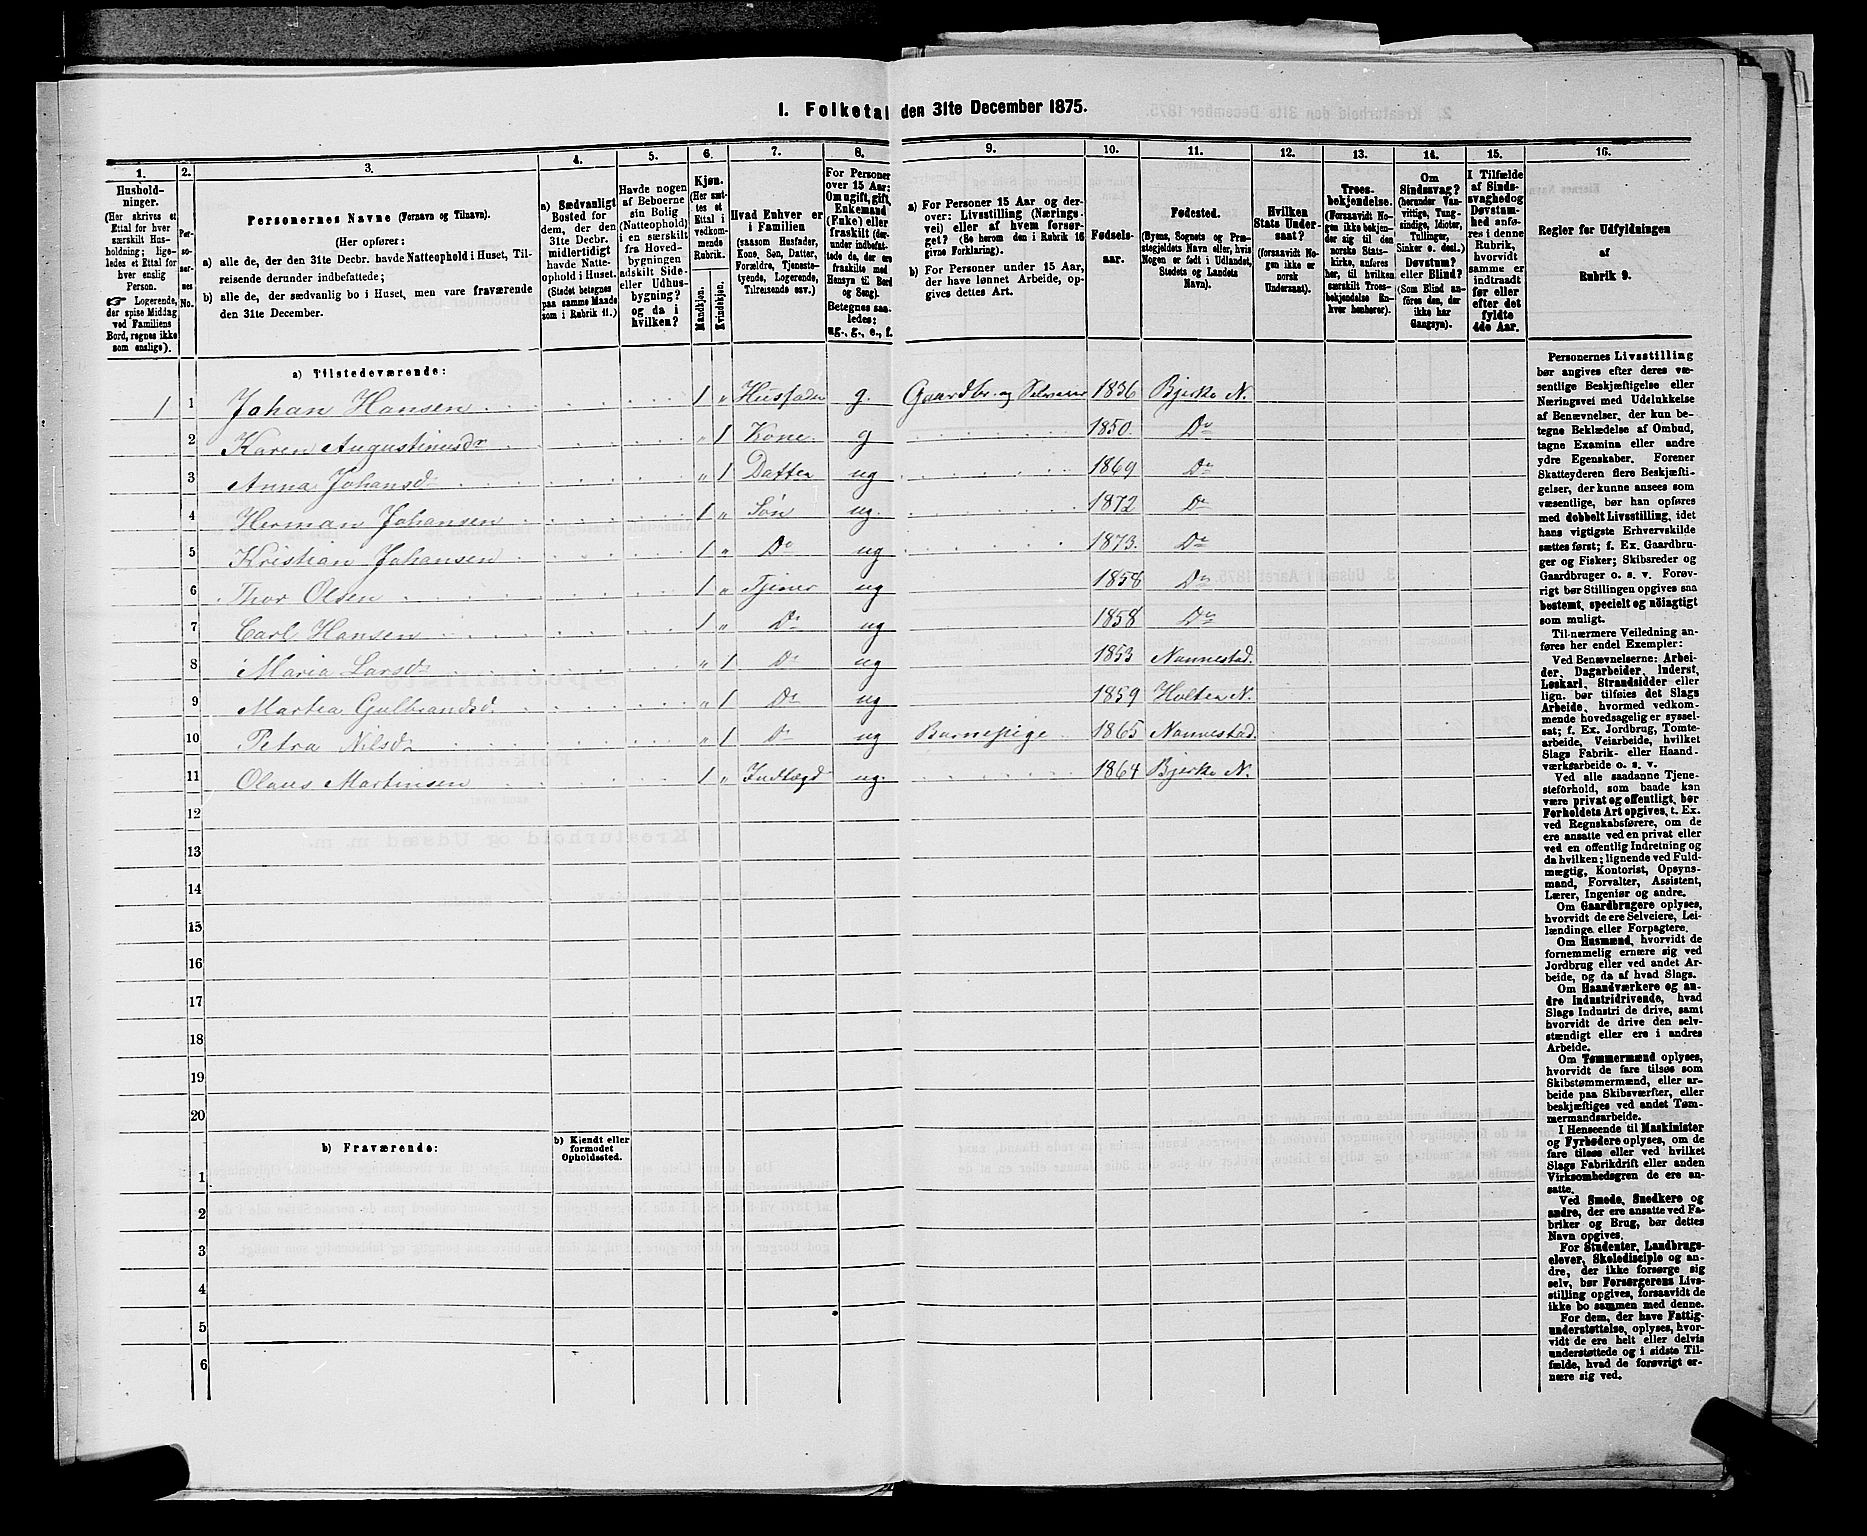 1. Folketal den 31te December 1875.
1.
2.
3.
4.
5.
6.
7.
8.
9.
10.
11.
12.
13.
14.
15.
16.
Hushold-
ninger.
(Her skrives et
Ettal for hver
særskilt Hus-
holdning; lige-
ledes et Ettal for
hver enslig
Person.
☞ Logerende,
der spise Middag
ved Familiens
Bord, regnes ikke
som enslige).
Per-
so-
ner-
nes
No.
Personernes Navne (Fornavn og Tilnavn).
(Her opfører:
a) alle de, der den 31te Decbr. havde Natteophold i Huset, Til-
reisende derunder indbefattede;
b) alle de, der sædvanlig bo i Huset, men vare fraværende
den 31te December.
a) Sædvanligt
Bosted for
dem, der den
31te Decbr.
midlertidigt
havde Natte-
ophold i Huset.
(Stedet betegnes
paa samme Maade
som i Rubrik 11.)
Havde nogen
af Beboerne
sin Bolig
(Natteophold)
i en særskilt
fra Hoved-
bygningen
adskilt Side-
eller Udhus-
bygning?
og da i
hvilken?
Kjøn.
(Her sæt-
tes et
Ettal i
vedkom-
mende
Rubrik.
Mandkjøn.
Kvindekjøn.
Hvad Enhver er
i Familien
(saasom Husfader,
Kone, Søn, Datter,
Forældre, Tjeneste-
tyende, Logerende,
Tilreisende osv.)
For Personer
over 15 Aar:
Om ugift, gift,
Enkemand
(Enke) eller
fraskilt (der-
under indbefat-
tede de, der ere
fraskilte med
Hensyn til Bord
og Seng).
Betegnes saa-
ledes:
ug., g., e., f.
a) For Personer 15 Aar og der-
over: Livsstilling (Nærings-
vei) eller af hvem forsør-
get? (Se herom den i Rubrik 16
givne Forklaring).
b) For Personer under 15 Aar,
der have lønnet Arbeide, op-
gives dettes Art.
Fødsels-
aar.
Fødested.
(Byens, Sognets og Præ-
stegjeldets Navn eller, hvis
Nogen er født i Udlandet,
Stedets og Landets
Navn).
Hvilken
Stats Under-
saat?
(forsaavidt No-
gen ikke er
norsk
Undersaat).
Troes-
bekjendelse.
(Forsaavidt No-
gen ikke bekjen-
der sig til den
norske Stats-
kirke, anføres
her, til hvilken
særskilt Troes-
bekjendelse En-
hver henhører).
Om
Sindssvag?
(herunder Van-
vittige, Tung-
sindige, Idioter,
Tullinger,
Sinker o. desl.)
Døvstum?
eller Blind?
(Som Blind an-
føres den, der
ikke har
Gangsyn).
I Tilfælde
af Sinds-
svaghed og
Døvstum-
hed anfø-
res i denne
Rubrik,
hvorvidt
samme er
indtraadt
før eller
efter det
fyldte
4de Aar.
Regler for Udfyldningen
af
Rubrik 9.
a) Tilstedeværende:
1 1 Johan Hansen 1 " Husfader g. Gaardbr. og Selveier 1836 Bjerke N.
2 Karen Augustinusdr " 1 Kone g 1850. Do
3 Anna Johansdr " 1 Datter ug 1869 Do
4 Herman Johansen 1 " Søn ug. 1872 Do
5 Kristian Johansen 1 " Do ug 1873. Do
6 Thor Olsen 1 " Tjener ug 1858 Do
7 Carl Hansen 1 " Do ug 1858 Do
8 Maria Larsdr " 1 Do ug 1853 Nannestad.
9 Martea Gulbrandsd. " 1 Do ug 1859 Holter N.
10 Petra Nilsdr " 1 Do ug Barnepige 1865 Nannestad.
11 Olaus Martinsen 1 " Indlægd ug. 1864 Bjerke N.
12
13
14
15
16
17
18
19
20
b) Fraværende:
b) Kjendt eller
formodet
Opholdssted.
1
2
3
4
5
6
Personernes Livsstilling
bør angives efter deres væ-
sentlige Beskjæftigelse eller
Næringsvei med Udelukkelse
af Benævnelser, der kun be-
tegne Beklædelse af Ombud,
tagne Examina eller andre
ydre Egenskaber. Forener
Skatteyderen flere Beskjæfti-
gelser, der kunne ansees som
væsentlige, bør han opføres
med dobbelt Livsstilling, idet
hans vigtigste Erhvervskilde
sættes først; f. Ex. Gaardbru-
ger og Fisker; Skibsreder og
Gaardbruger o. s. v. Forøv-
rigt bør Stillingen opgives saa
bestemt, specielt og nöiagtigt
som muligt.
Til nærmere Veiledning an-
føres her endel Exempler:
Ved Benævnelserne: Arbei-
der, Dagarbeider, Inderst,
Løskarl, Strandsidder eller
lign. bør tilføies det Slags
Arbeide, hvormed vedkom-
mende hovedsagelig er syssel-
sat; f. Ex. Jordbrug, Tomte-
arbeide, Veiarbeide, hvilket
Slags Fabrik- eller Haand-
værksarbeide o. s. v.
Ved alle saadanne Tjene-
steforhold, som baade kan
være privat og offentligt, bør
Forholdets Art opgives, t. Ex.
ved Regnskabsførere, om de
ere ansatte ved en privat eller
ved en offentlig Indretning og
da hvilken; lignende ved Fuld-
mægtig, Kontorist, Opsyns-
mand, Forvalter, Assistent,
Lærer, Ingeniør og andre.
Om Gaardbrugere oplyses,
hvorvidt de ere Selveiere, Lei-
lændinge eller Forpagtere.
Om Husmænd, hvorvidt de
fornemmelig ernære sig ved
Jordbrug eller ved andet Ar-
beide, og da af hvad Slags.
Om Haandværkere og an-
dre Industridrivende, hvad
Slags Industri de drive, samt
hvorvidt de drive den selv-
stændigt eller ere i andres
Arbeide.
Om Tømmermænd oplyses,
hvorvidt de fare tilsøs som
Skibstømmermænd, eller ar-
beide paa Skibsværfter, eller
beskjæftiges ved andet Tøm-
mermandsarbeide.
I Henseende til Maskinister
og Fyrbødere oplyses, om de
fare tilsøs eller ved hvilket
Slags Fabrikdrift eller anden
Virksomhedsgren de ere an-
satte.
Ved Smede, Snedkere og
andre, der ere ansatte ved Fa-
briker og Brug, bør dettes
Navn opgives.
For Studenter, Landbrugs-
elever, Skoledisciple og an-
dre, der ikke forsørge sig
selv, bør Forsørgerens Livs-
stilling opgives, forsaavidt de
ikke bo sammen med denne.
For dem, der have Fattig-
understøttelse, oplyses, hvor-
vidt de ere helt eller delvis
understøttede og i sidste Til-
fælde, hvad de forøvrigt er-
nære sig ved.